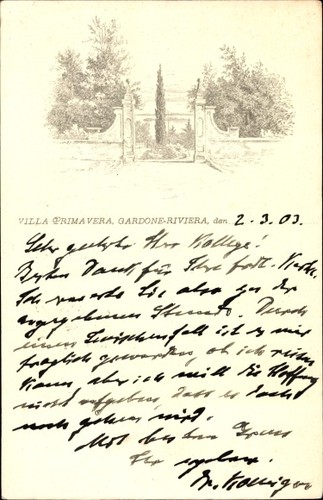 VILLA PRIMAVERA, GARDONE-RIVIERA, den 2.3.03.
Sehr geehrter Herr Kollege!
Besten Dank für Ihre frdl. Karte.
Ich erwarte Sie also zu der
angegebenen Stunde. Durch
einen Zwischenfall ist es mir
fraglich geworden, ob ich reiten
kann, aber ich will die Hoffnung
nicht aufgeben, dass es doch
noch gehen wird.
Mit bestem Gruss
Ihr ergebener
Dr.